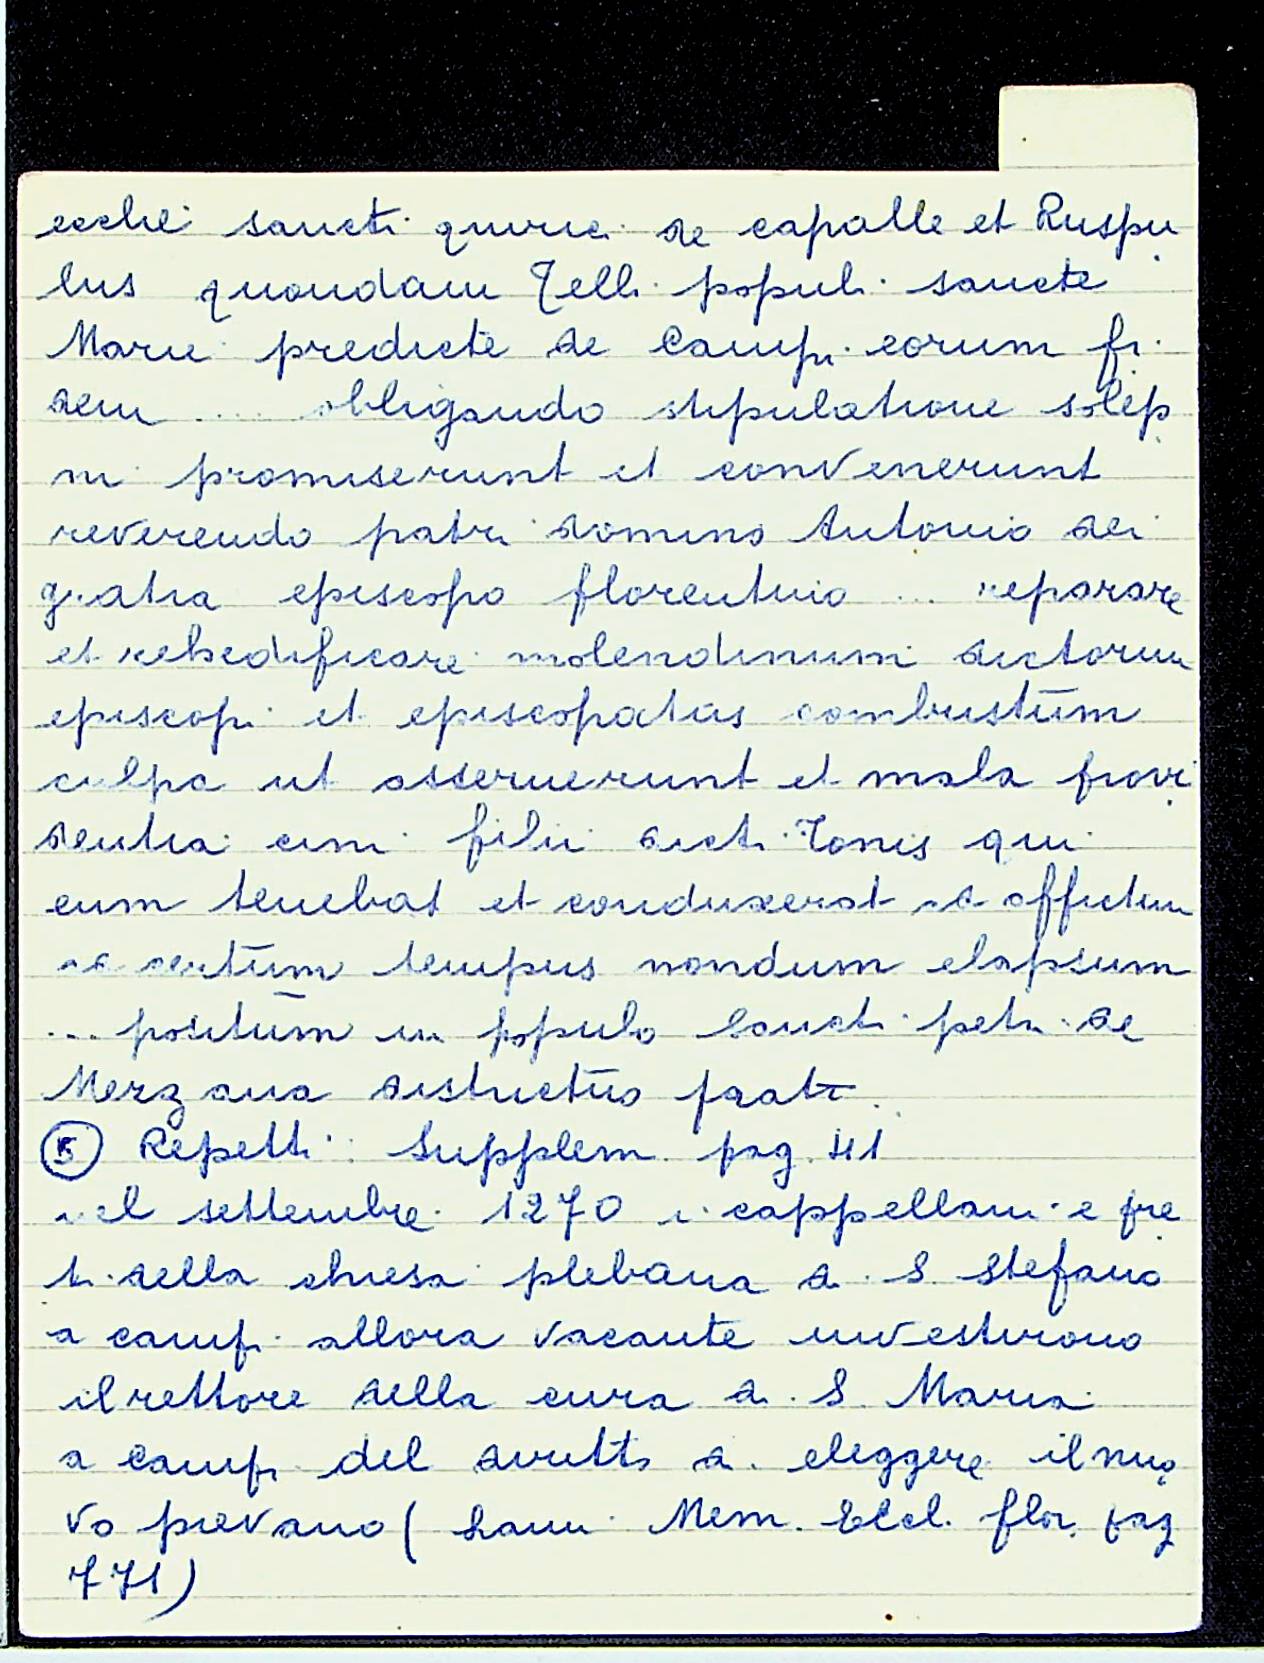 ecclie sancti quirici de capalle et Ruspu
lus quondam Telli populi sancte
Marie predicte de Campi eorum fi
dem ... obligando stipulatione solep
ni promiserunt et convenerunt
reverendo patri domino Antonio dei
gratia episcopo florentino ... reparare
et rehedificare molendinum dictorum
episcopi et episcopatus combustum
culpa ut asseruerunt et mala provi
dentia cini filii dicti Tonis qui
eum tenebat et conduxerat ad affictum
ad certum tempus nondum elapsum
... positum in populo Sancti petri de
Merzana districtus prati
5 Repetti: Supplem. pag. 41
nel settembre 1270 i cappellani e pre
ti della chiesa plebana di S Stefano
a campi allora vacante investirono
il rettore della cura di S. Maria
a Campi del diritto di eleggere il nuo
vo pievano ( Lami Mem. Eccl. flor. pag
771)